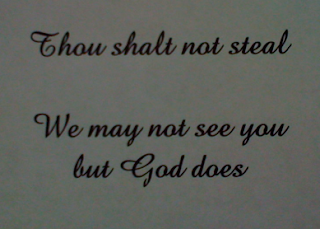 Thou shalt not steal
We may not see you
but God does